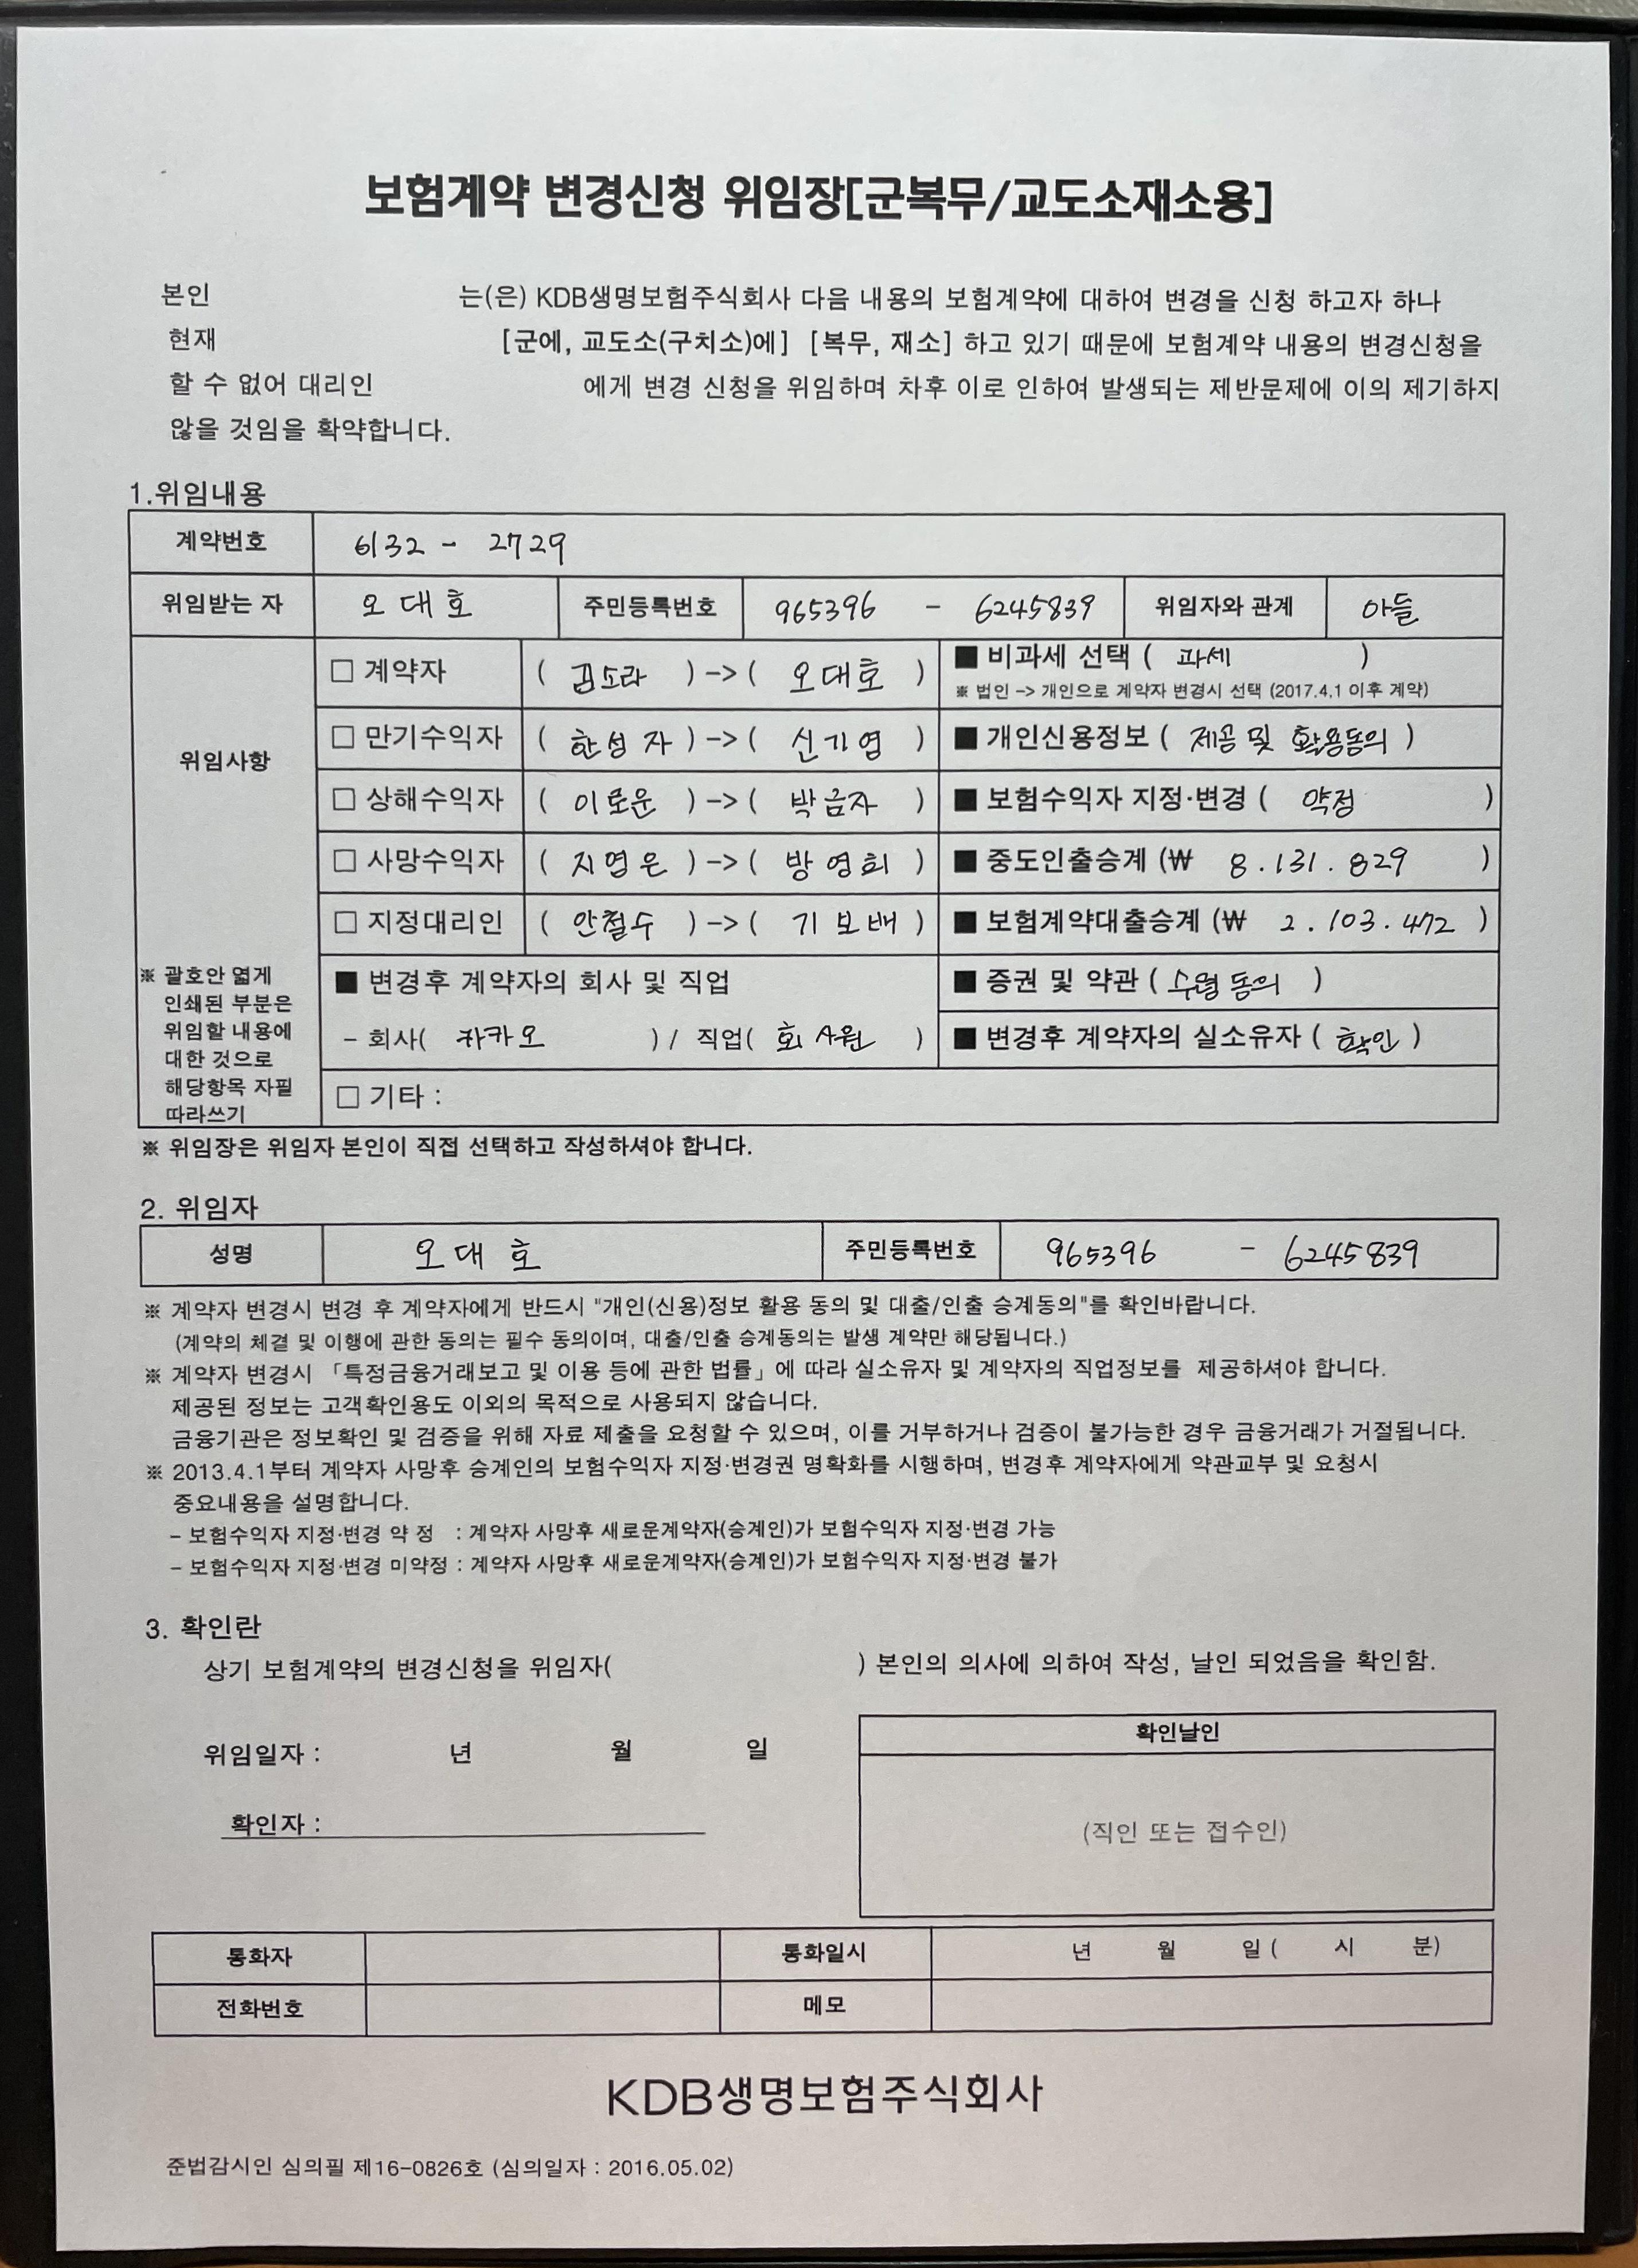 보험계약 변경신청 위임장[군복무/교도소재소용]
본인 는(은) KDB생명보험주식회사 다음 내용의 보험계약에 대하여 변경을 신청 하고자 하나
현재 [군에, 교도소(구치소)에] [복무, 재소] 하고 있기 때문에 보험계약 내용의 변경신청을
할 수 없어 대리인 에게 변경 신청을 위임하며 차후 이로 인하여 발생되는 제반문제에 이의 제기하지
않을 것임을 확약합니다.
1.위임내용
계약번호 6132 - 2729
위임받는 자 오대호 주민등록번호 965396 - 6245839 위임자와 관계 아들
위임사항
□ 계약자 ( 김도라 ) -> ( 오대호 ) ■ 비과세 선택 ( 과세 )
※ 법인 -> 개인으로 계약자 변경시 선택 (2017.4.1 이후 계약)
□ 만기수익자 ( 한성자 ) -> ( 신기엽 ) ■ 개인신용정보 ( 제공 및 활용동의 )
□ 상해수익자 ( 이로운 ) -> ( 박금자 ) ■ 보험수익자 지정·변경 ( 약정 )
□ 사망수익자 ( 지영은 ) -> ( 방영희 ) ■ 중도인출승계 (₩ 8.131.829 )
□ 지정대리인 ( 안철수 ) -> ( 기보배 ) ■ 보험계약대출승계 (₩ 2.103.472 )
※ 괄호안 엷게
인쇄된 부분은
위임할 내용에
대한 것으로
해당항목 자필
따라쓰기
■ 변경후 계약자의 회사 및 직업 ■ 증권 및 약관 ( 수령 동의 )
- 회사( 카카오 ) / 직업( 회사원 ) ■ 변경후 계약자의 실소유자 ( 확인 )
□ 기타 :
※ 위임장은 위임자 본인이 직접 선택하고 작성하셔야 합니다.
2. 위임자
성명 오대호 주민등록번호 965396 - 6245839
※ 계약자 변경시 변경 후 계약자에게 반드시 "개인(신용)정보 활용 동의 및 대출/인출 승계동의"를 확인바랍니다.
(계약의 체결 및 이행에 관한 동의는 필수 동의이며, 대출/인출 승계동의는 발생 계약만 해당됩니다.)
※ 계약자 변경시 「특정금융거래보고 및 이용 등에 관한 법률」에 따라 실소유자 및 계약자의 직업정보를 제공하셔야 합니다.
제공된 정보는 고객확인용도 이외의 목적으로 사용되지 않습니다.
금융기관은 정보확인 및 검증을 위해 자료 제출을 요청할 수 있으며, 이를 거부하거나 검증이 불가능한 경우 금융거래가 거절됩니다.
※ 2013.4.1부터 계약자 사망후 승계인의 보험수익자 지정·변경권 명확화를 시행하며, 변경후 계약자에게 약관교부 및 요청시
중요내용을 설명합니다.
- 보험수익자 지정·변경 약 정 : 계약자 사망후 새로운계약자(승계인)가 보험수익자 지정·변경 가능
- 보험수익자 지정·변경 미약정 : 계약자 사망후 새로운계약자(승계인)가 보험수익자 지정·변경 불가
3. 확인란
상기 보험계약의 변경신청을 위임자( ) 본인의 의사에 의하여 작성, 날인 되었음을 확인함.
위임일자 : 년 월 일
확인자 :
확인날인
(직인 또는 접수인)
통화자 통화일시 년 월 일 ( 시 분)
전화번호 메모
KDB생명보험주식회사
준법감시인 심의필 제16-0826호 (심의일자 : 2016.05.02)